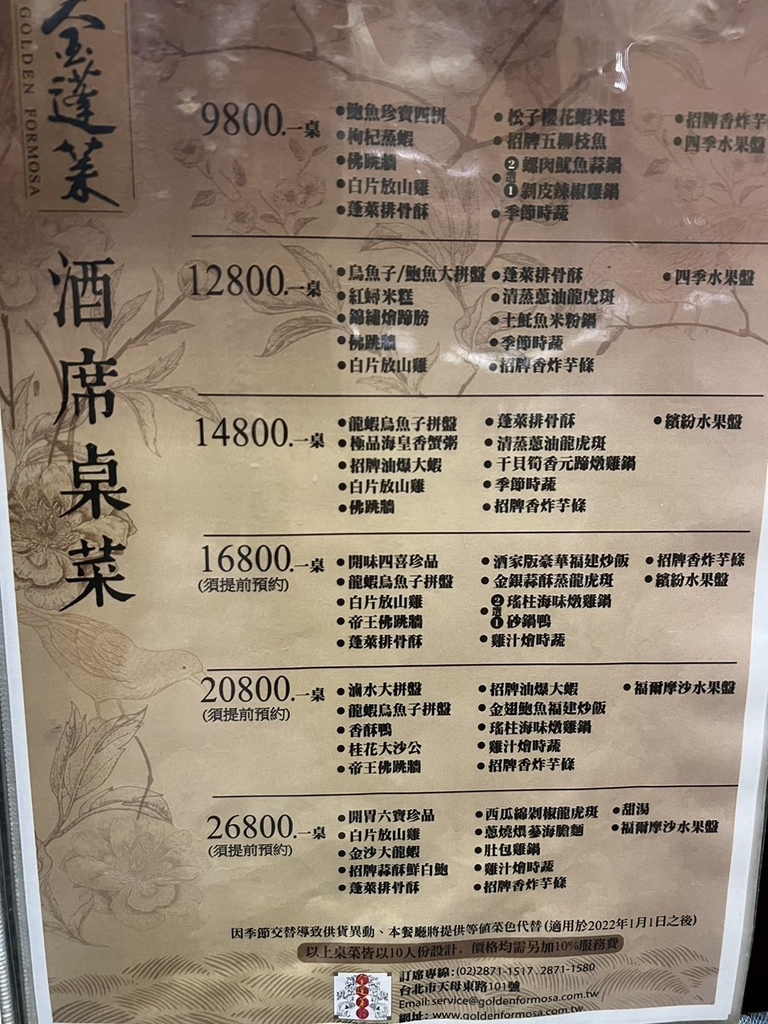 金蓬萊
GOLDEN FORMOSA
酒席桌菜
9800.一桌
●鮑魚珍寶四拼
●枸杞蒸蝦
●佛跳牆
●白片放山雞
●蓬萊排骨酥
●松子櫻花蝦米糕
●招牌五柳枝魚
●2選1
❷螺肉魷魚蒜鍋
❶剝皮辣椒雞鍋
●季節時蔬
●招牌香炸芋
●四季水果盤
12800.一桌
●烏魚子/鮑魚大拼盤
●紅蟳米糕
●錦繡燴蹄膀
●佛跳牆
●白片放山雞
●蓬萊排骨酥
●清蒸蔥油龍虎斑
●土魠魚米粉鍋
●季節時蔬
●招牌香炸芋條
●四季水果盤
14800.一桌
●龍蝦烏魚子拼盤
●極品海皇香蟹粥
●招牌油爆大蝦
●白片放山雞
●佛跳牆
●蓬萊排骨酥
●清蒸蔥油龍虎斑
●干貝筍香元蹄燉雞鍋
●季節時蔬
●招牌香炸芋條
●繽紛水果盤
16800.一桌
(須提前預約)
●開味四喜珍品
●龍蝦烏魚子拼盤
●白片放山雞
●帝王佛跳牆
●蓬萊排骨酥
●酒家版豪華福建炒飯
●金銀蒜酥蒸龍虎斑
●2選1
❷瑤柱海味燉雞鍋
❶砂鍋鴨
●雞汁燴時蔬
●招牌香炸芋條
●繽紛水果盤
20800.一桌
(須提前預約)
●滷水大拼盤
●龍蝦烏魚子拼盤
●香酥鴨
●桂花大沙公
●帝王佛跳牆
●招牌油爆大蝦
●金翅鮑魚福建炒飯
●瑤柱海味燉雞鍋
●雞汁燴時蔬
●招牌香炸芋條
●福爾摩沙水果盤
26800.一桌
(須提前預約)
●開胃六寶珍品
●白片放山雞
●金沙大龍蝦
●招牌蒜酥鮮白鮑
●蓬萊排骨酥
●西瓜綿剁椒龍虎斑
●蔥燒煨蔘海膽麵
●肚包雞鍋
●雞汁燴時蔬
●招牌香炸芋條
●甜湯
●福爾摩沙水果盤
因季節交替導致供貨異動、本餐廳將提供等值菜色代替(適用於2022年1月1日之後)
以上桌菜皆以10人份設計，價格均需另加10%服務費
訂席專線:(02)2871-1517、2871-1580
台北市天母東路101號
Email:service@goldenformosa.com.tw
網址: www.goldenformosa.com.tw